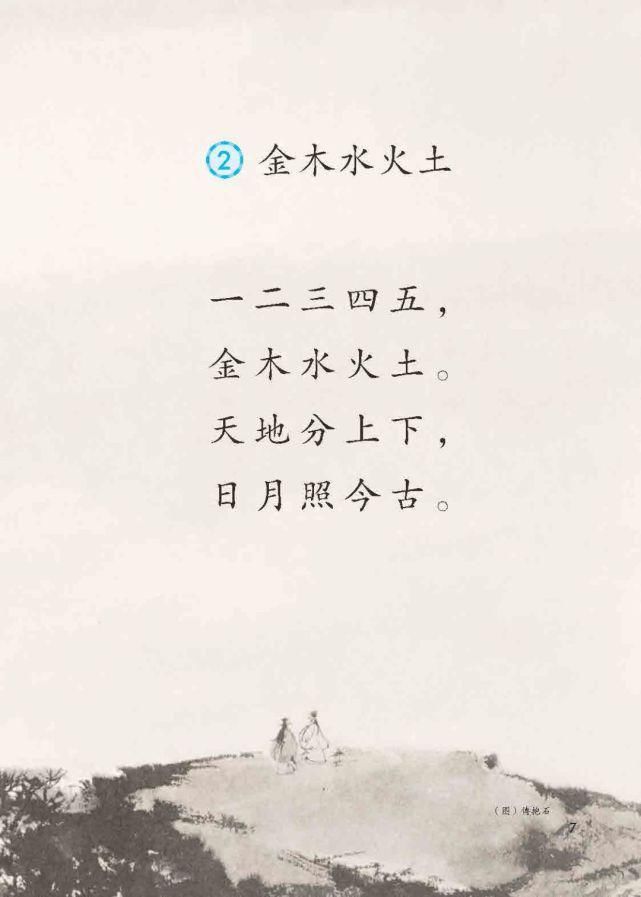 2 金木水火土
一二三四五，
金木水火土。
天地分上下，
日月照今古。
（图）傅抱石
7